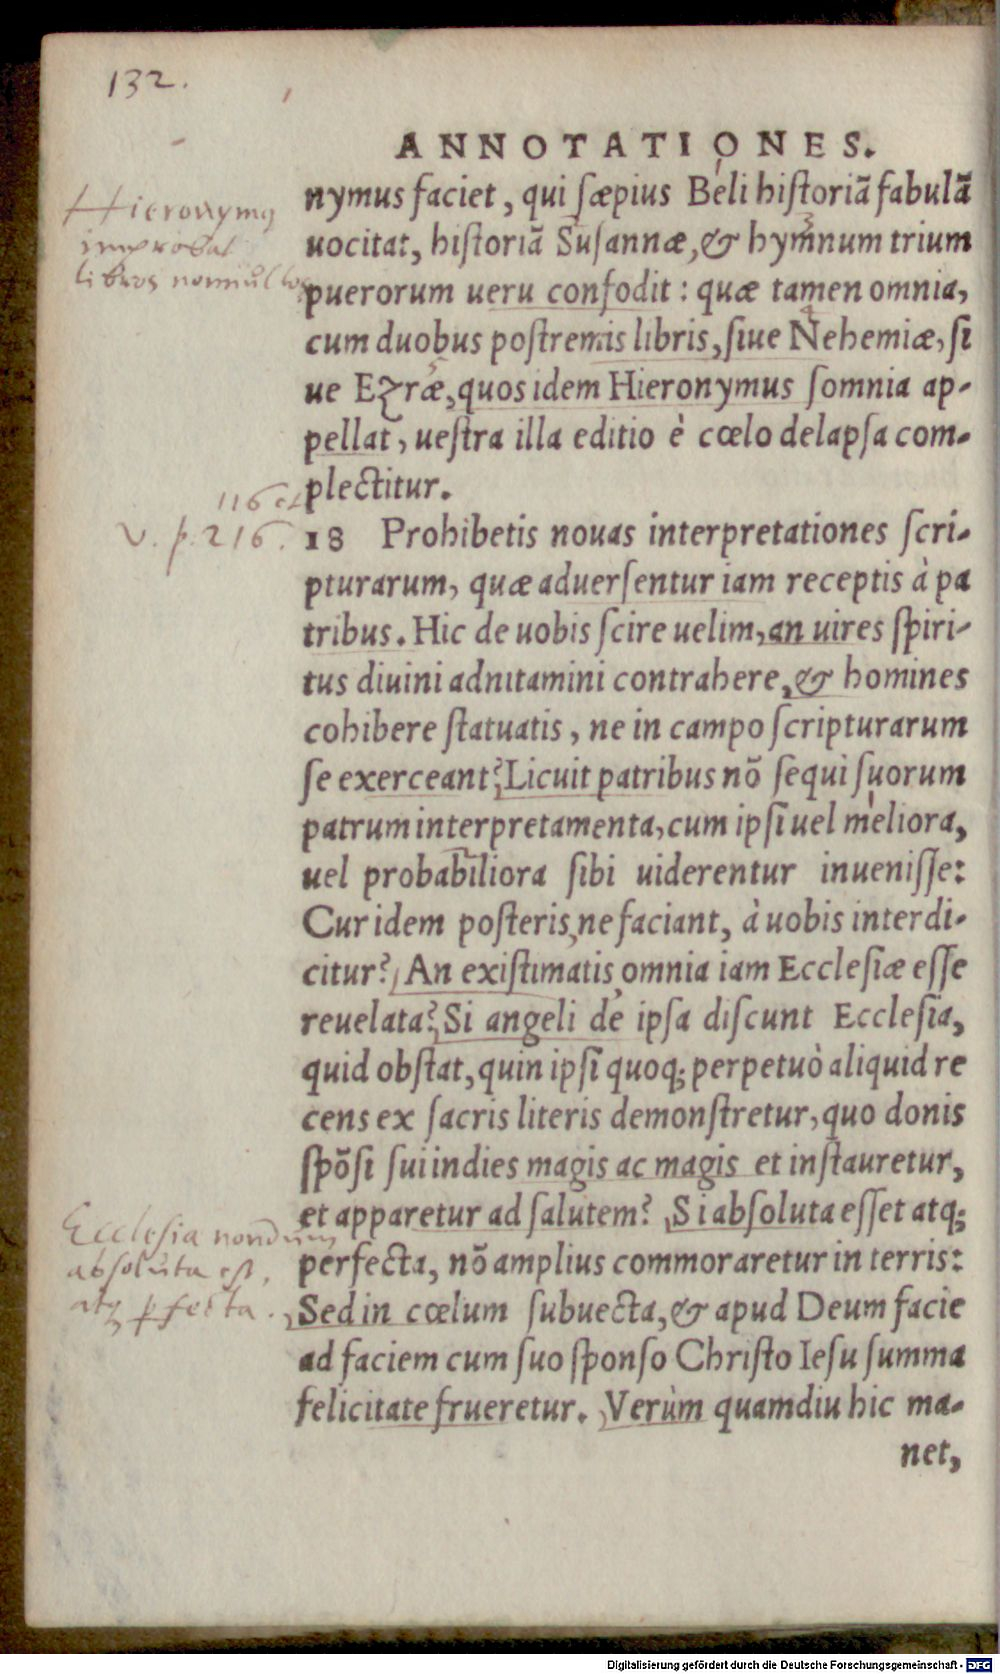 132.
ANNOTATIONES.
nymus faciet, qui sæpius Beli historiā fabulā
uocitat, historiā Susannæ, & hymnum trium
puerorum ueru confodit: quæ tamen omnia,
cum duobus postremis libris, siue Nehemiæ, si
ue Ezræ, quos idem Hieronymus somnia ap-
pellat, uestra illa editio è cœlo delapsa com-
plectitur.
18 Prohibetis nouas interpretationes scri-
pturarum, quæ aduersentur iam receptis à pa
tribus. Hic de uobis scire uelim, an uires spiri-
tus diuini adnitamini contrahere, & homines
cohibere statuatis, ne in campo scripturarum
se exerceant? Licuit patribus nō sequi suorum
patrum interpretamenta, cum ipsi uel meliora,
uel probabiliora sibi uiderentur inuenisse:
Cur idem posteris, ne faciant, à uobis interdi-
citur? An existimatis, omnia iam Ecclesiæ esse
reuelata? Si angeli de ipsa discunt Ecclesia,
quid obstat, quin ipsi quoq; perpetuò aliquid re
cens ex sacris literis demonstretur, quo donis
spōsi sui indies magis ac magis et instauretur,
et apparetur ad salutem? Si absoluta esset atq;
perfecta, nō amplius commoraretur in terris:
Sed in cœlum subuecta, & apud Deum facie
ad faciem cum suo sponso Christo Iesu summa
felicitate frueretur. Verùm quamdiu hic ma-
net,
Hieronymus
improbat
libros nonnullos
116 et
v. p. 216.
Ecclesia nondum
absoluta est,
atq; perfecta.
Digitalisierung gefördert durch die Deutsche Forschungsgemeinschaft - DFG